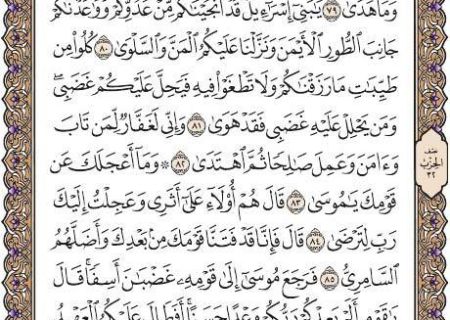 وَمَا هَدَىٰ ٧٩ يَٰبَنِىٓ إِسْرَٰٓءِيلَ قَدْ أَنجَيْنَٰكُم مِّنْ عَدُوِّكُمْ وَوَٰعَدْنَٰكُمْ
جَانِبَ ٱلطُّورِ ٱلْأَيْمَنَ وَنَزَّلْنَا عَلَيْكُمُ ٱلْمَنَّ وَٱلسَّلْوَىٰ ٨٠ كُلُوا۟ مِن
طَيِّبَٰتِ مَا رَزَقْنَٰكُمْ وَلَا تَطْغَوْا۟ فِيهِ فَيَحِلَّ عَلَيْكُمْ غَضَبِى ۖ
وَمَن يَحْلِلْ عَلَيْهِ غَضَبِى فَقَدْ هَوَىٰ ٨١ وَإِنِّى لَغَفَّارٌ لِّمَن تَابَ
وَءَامَنَ وَعَمِلَ صَٰلِحًا ثُمَّ ٱهْتَدَىٰ ٨٢ ۞ وَمَآ أَعْجَلَكَ عَن
قَوْمِكَ يَٰمُوسَىٰ ٨٣ قَالَ هُمْ أُو۟لَآءِ عَلَىٰٓ أَثَرِى وَعَجِلْتُ إِلَيْكَ
رَبِّ لِتَرْضَىٰ ٨٤ قَالَ فَإِنَّا قَدْ فَتَنَّا قَوْمَكَ مِنۢ بَعْدِكَ وَأَضَلَّهُمُ
ٱلسَّامِرِىُّ ٨٥ فَرَجَعَ مُوسَىٰٓ إِلَىٰ قَوْمِهِۦ غَضْبَٰنَ أَسِفًا ۚ قَالَ
يَٰقَوْمِ أَلَمْ يَعِدْكُمْ رَبُّكُمْ وَعْدًا حَسَنًا ۚ أَفَطَالَ عَلَيْكُمُ ٱلْعَهْدُ
نصف
الحزب
٣٢